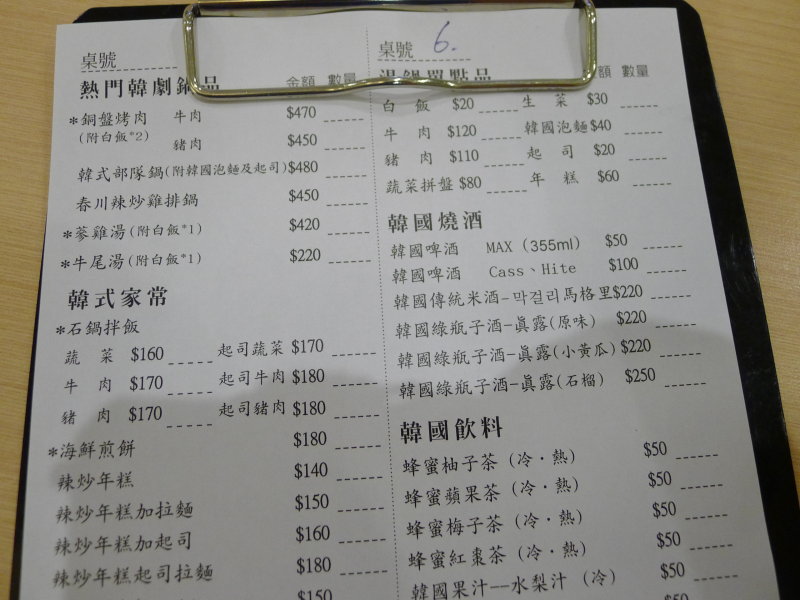 桌號
熱門韓劇鍋品 金額 數量
*銅盤烤肉 牛肉 $470
(附白飯*2) 豬肉 $450
韓式部隊鍋(附韓國泡麵及起司)$480
春川辣炒雞排鍋 $450
*蔘雞湯(附白飯*1) $420
*牛尾湯(附白飯*1) $220
韓式家常
*石鍋拌飯
蔬菜 $160 起司蔬菜 $170
牛肉 $170 起司牛肉 $180
豬肉 $170 起司豬肉 $180
*海鮮煎餅 $180
辣炒年糕 $140
辣炒年糕加拉麵 $150
辣炒年糕加起司 $160
辣炒年糕起司拉麵 $180
$150
桌號 6.
湯鍋單點品 額 數量
白飯 $20 生菜 $30
牛肉 $120 韓國泡麵 $40
豬肉 $110 起司 $20
蔬菜拼盤 $80 年糕 $60
韓國燒酒
韓國啤酒 MAX (355ml) $50
韓國啤酒 Cass、Hite $100
韓國傳統米酒-막걸리馬格里$220
韓國綠瓶子酒-眞露(原味) $220
韓國綠瓶子酒-眞露(小黃瓜) $220
韓國綠瓶子酒-眞露(石榴) $250
韓國飲料
蜂蜜柚子茶 (冷・熱) $50
蜂蜜蘋果茶 (冷・熱) $50
蜂蜜梅子茶 (冷・熱) $50
蜂蜜紅棗茶 (冷・熱) $50
韓國果汁--水梨汁 (冷) $50
$50